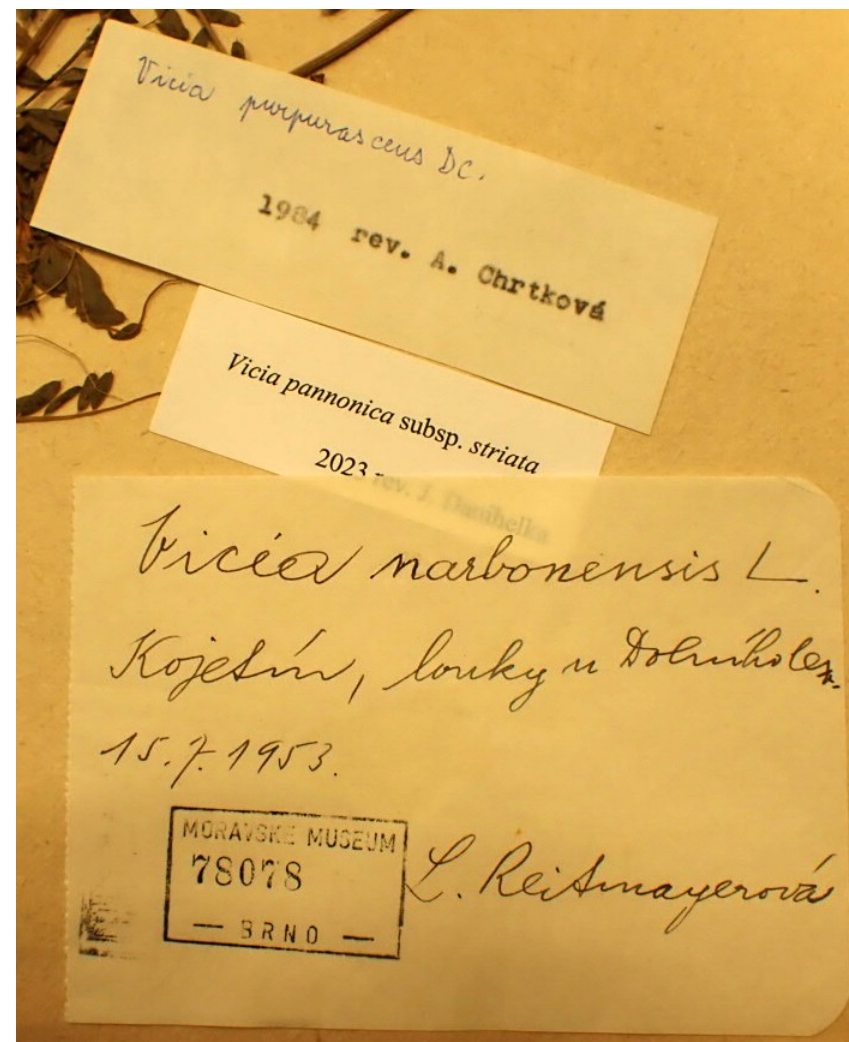 Vicia purpurascens DC.
1984 rev. A. Chrtková
Vicia pannonica subsp. striata
2023 rev. J. Danihelka
Vicia narbonensis L.
Kojetín, louky u
15.7.1953.
MORAVSKÉ MUSEUM
78078
— BRNO —
L. Reitmayerová